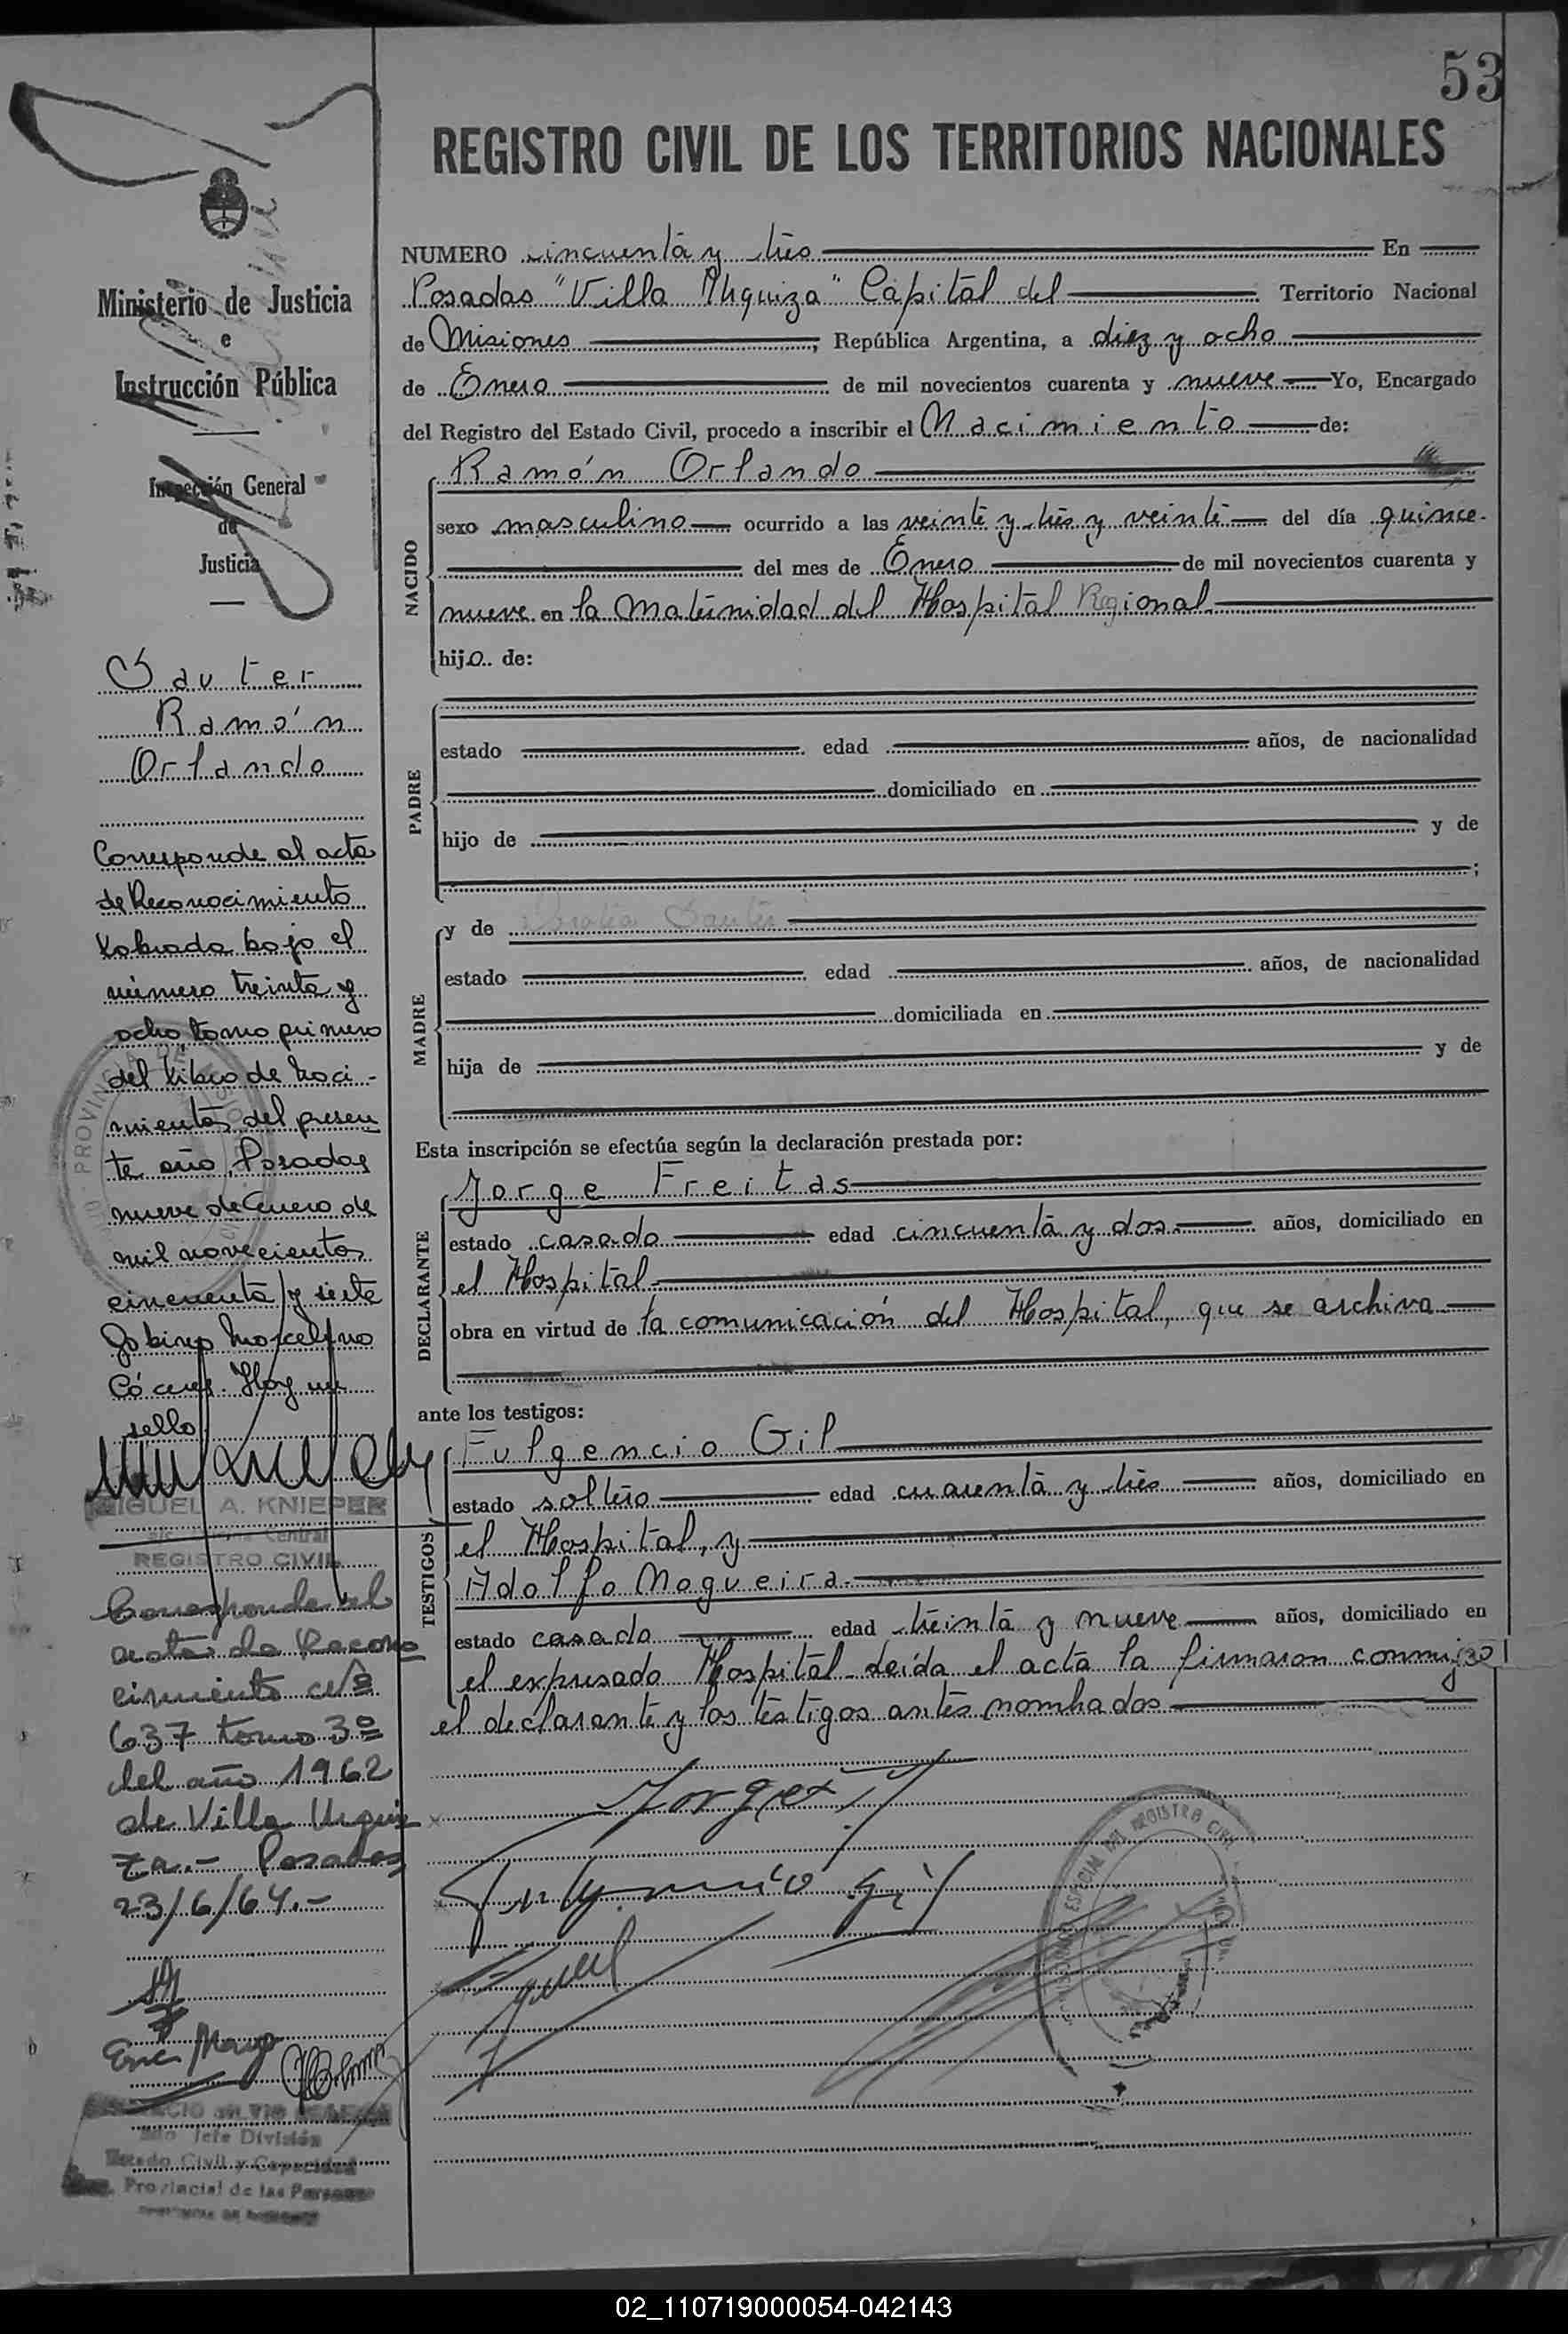 53
REGISTRO CIVIL DE LOS TERRITORIOS NACIONALES
Ministerio de Justicia
e
Instrucción Pública
Inspección General
de
Justicia
Sauter
Ramón
Orlando
Corresponde al acta
de Reconocimiento
labrada bajo el
número treinta y
ocho, tomo primero
del libro de naci-
mientos del presen
te año, Posadas
nueve de Enero de
mil novecientos
cincuenta y siete
Hay un
sello
MIGUEL A. KNIEPER
Central
REGISTRO CIVIL
Corresponde al
acta de Recono
cimiento nº
637 tomo 3º
del año 1962
de Villa Urqui
za.- Posadas
23/6/64.-
Jefe División
Estado Civil y Capacidad
Provincial de las Personas
NUMERO cincuenta y tres En
Posadas "Villa Urquiza" Capital del Territorio Nacional
de Misiones, República Argentina, a diez y ocho
de Enero de mil novecientos cuarenta y nueve Yo, Encargado
del Registro del Estado Civil, procedo a inscribir el Nacimiento de:
NACIDO
Ramón Orlando
sexo masculino ocurrido a las veinte y tres y veinte del día quince
del mes de Enero de mil novecientos cuarenta y
nueve en la Maternidad del Hospital Regional
hijo de:
PADRE
estado edad años, de nacionalidad
domiciliado en
hijo de y de
;
MADRE
y de Sauter
estado edad años, de nacionalidad
domiciliada en
hija de y de
Esta inscripción se efectúa según la declaración prestada por:
DECLARANTE
Jorge Freitas
estado casado edad cincuenta y dos años, domiciliado en
el Hospital
obra en virtud de la comunicación del Hospital, que se archiva
ante los testigos:
TESTIGOS
Fulgencio Gil
estado soltero edad cuarenta y tres años, domiciliado en
el Hospital, y
Adolfo Nogueira
estado casado edad treinta y nueve años, domiciliado en
el expresado Hospital. Leída el acta la firmaron conmigo
el declarante y los testigos antes nombrados
Jorge
Fulgencio Gil
REGISTRO CIVIL
02_110719000054-042143